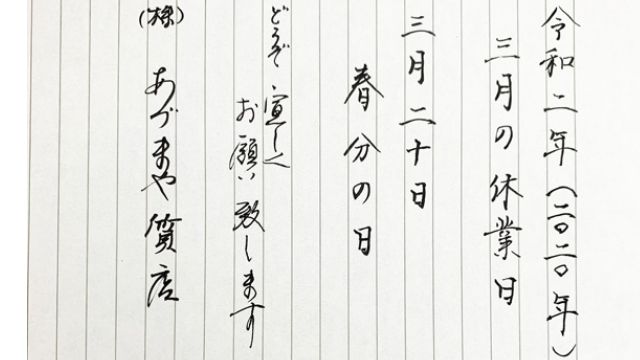 令和二年(二〇二〇年)
三月の休業日
三月二十日
春分の日
どうぞ宜しく
お願い致します
(株)あづまや質店